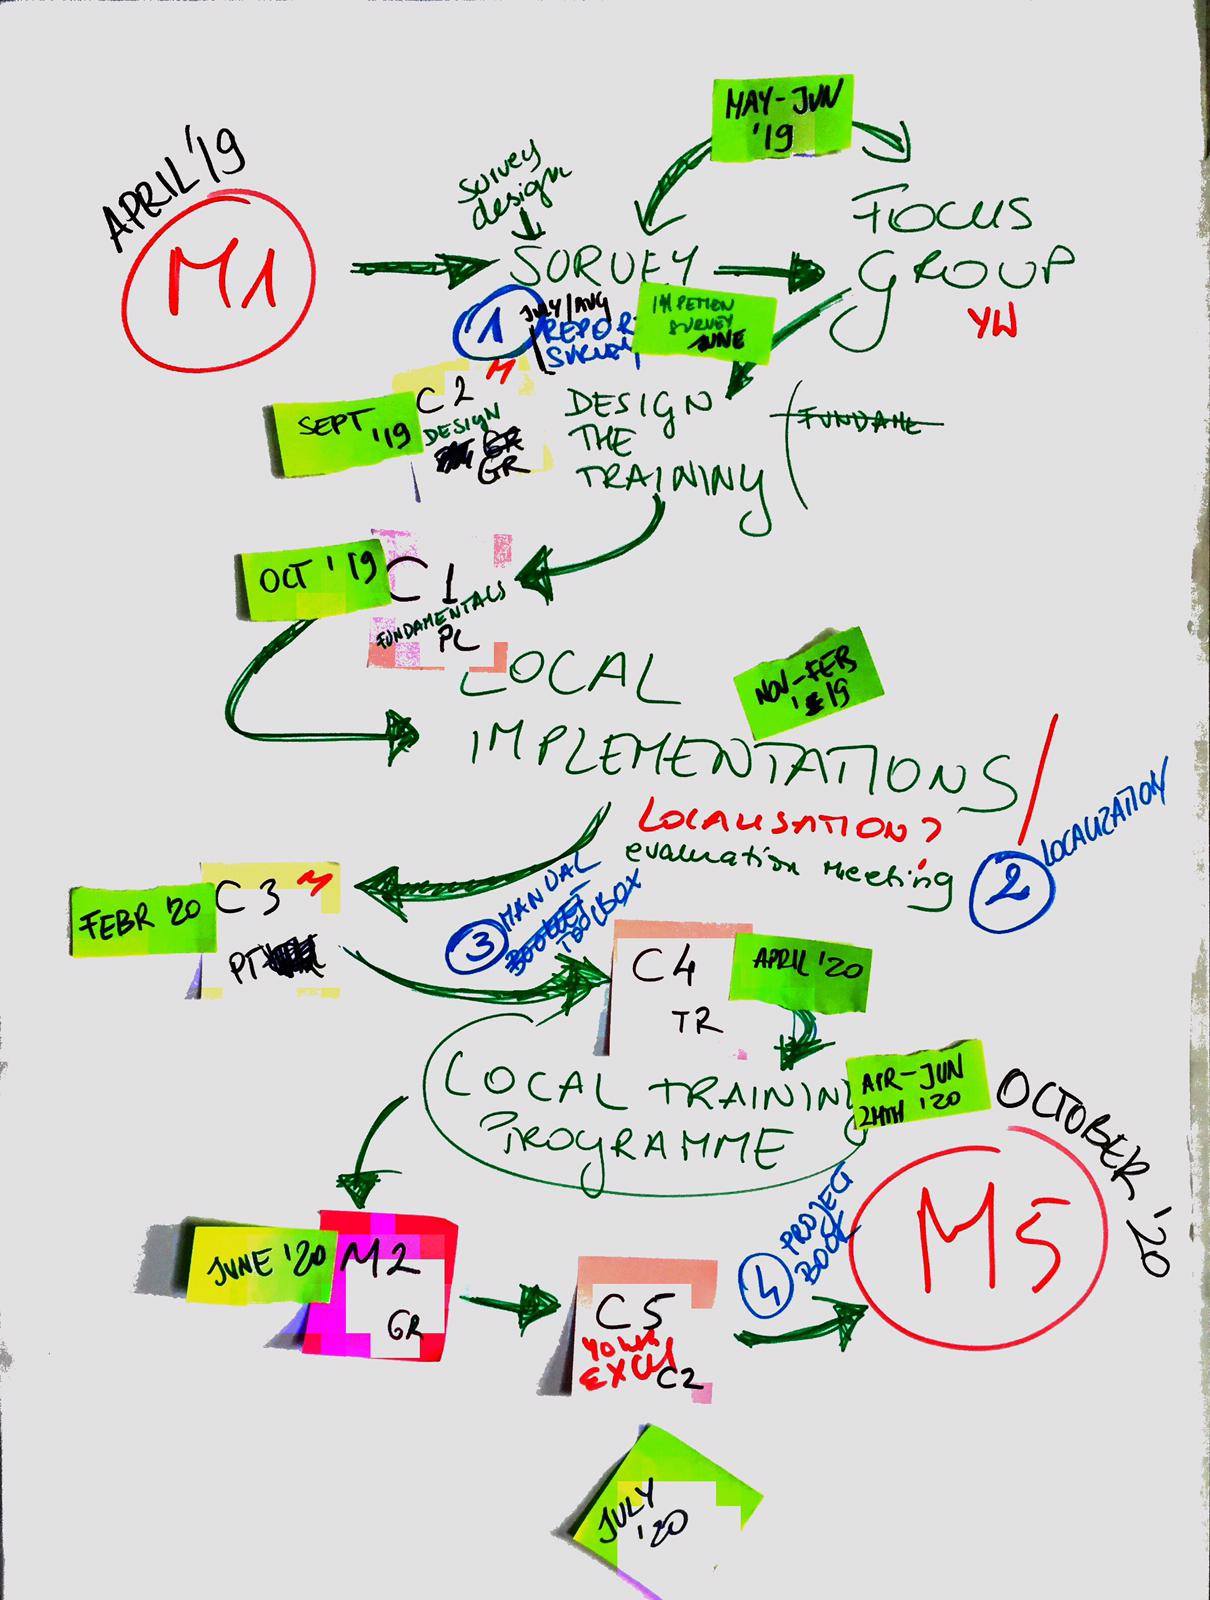 MAY-JUN
'19
APRIL '19
M1
Survey
design
SURVEY
FOCUS
GROUP
YW
1
JULY/AUG
REPOR
SURVEY
SURVEY
JUNE
SEPT '19
C2 M
DESIGN
GR
GR
DESIGN
THE
TRAINING
FUNDAME
OCT '19
C1
FUNDAMENTALS
PL
LOCAL
IMPLEMENTATIONS /
NOV-FEB
'19
LOCALISATION?
evaluation meeting
2 LOCALIZATION
FEBR '20
C3 M
PT
3 MANUAL
BOOKLET TOOLBOX
C4
TR
APRIL '20
LOCAL TRAINING
PROGRAMME
APR-JUN
'20
OCTOBER '20
M5
JUNE '20
M2
GR
C5
C2
4 PROJECT
BOOK
JULY
'20